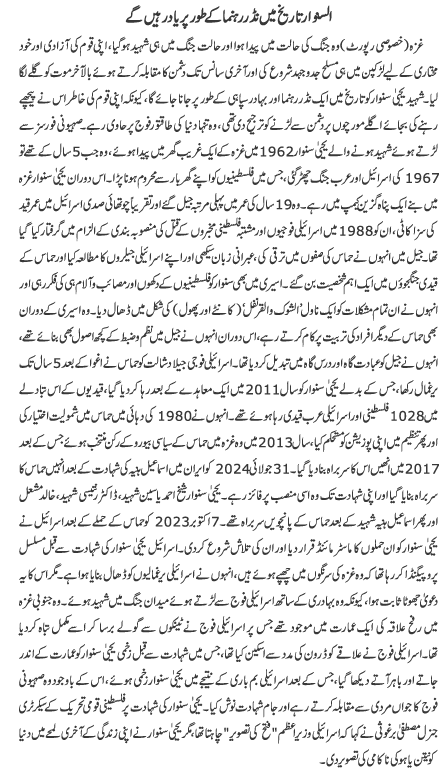 السنوار تاریخ میں نڈر رہنما کے طور پر یاد رہیں گے
غزہ (خصوصی رپورٹ) وہ جنگ کی حالت میں پیدا ہوا اور حالت جنگ میں ہی شہید ہو گیا، اپنی قوم کی آزادی اور خود
مختاری کے لیے لڑکپن میں ہی مسلح جدوجہد شروع کی اور آخری سانس تک دشمن کا مقابلہ کرتے ہوئے بالآخر موت کو گلے لگا
لیا۔ شہید یحییٰ سنوار کو تاریخ میں ایک نڈر رہنما اور بہادر سپاہی کے طور پر جانا جائے گا، کیونکہ اپنی قوم کی خاطر اس نے پیچھے
رہنے کی بجائے اگلے مورچوں پر دشمن سے لڑنے کو ترجیح دی تھی، وہ تنہا دنیا کی طاقتور فوج پر حاوی رہے۔ صہیونی فورسز سے
لڑتے ہوئے شہید ہونے والے یحییٰ سنوار 1962 میں غزہ کے ایک غریب گھر میں پیدا ہوئے، وہ جب 5 سال کے تھے تو
1967 کی اسرائیل اور عرب جنگ چھڑ گئی، جس میں فلسطینیوں کو اپنے گھر بار سے محروم ہونا پڑا۔ اس دوران یحییٰ سنوار غزہ
میں بنے ایک پناہ گزین کیمپ میں رہے۔ وہ 19 سال کی عمر میں پہلی مرتبہ جیل گئے اور تقریباً چوتھائی صدی اسرائیل میں عمر قید
کی سزا کاٹی، ان کو 1988 میں اسرائیلی فوجیوں اور مشتبہ فلسطینی مخبروں کے قتل کی منصوبہ بندی کے الزام میں گرفتار کیا گیا
تھا۔ جیل میں انہوں نے حماس کی صفوں میں ترقی کی، عبرانی زبان سیکھی اور اپنے اسرائیلی جیلروں کا مطالعہ کیا اور حماس کے
قیدی جنگجوؤں میں ایک اہم شخصیت بن گئے۔ اسیری میں بھی سنوار کو فلسطینیوں کے دکھوں اور مصائب و آلام ہی کی فکر رہی اور
انہوں نے ان تمام مشکلات کو ایک ناول 'الشوک والقرنفل' (کانٹے اور پھول) کی شکل میں ڈھال دیا۔ وہ اسیری کے دوران
بھی حماس کے دیگر افراد کی تربیت پر کام کرتے رہے، اس دوران انہوں نے جیل میں نظم و ضبط کے کچھ اصول بھی بنائے تھے،
انہوں نے جیل کو عبادت گاہ اور درس گاہ میں تبدیل کر دیا تھا۔ اسرائیلی فوجی جیلاد شالت کو حماس نے اغوا کے بعد 5 سال تک
یرغمال رکھا، جس کے بدلے یحییٰ سنوار کو سال 2011 میں ایک معاہدے کے بعد رہا کر دیا گیا، قیدیوں کے اس تبادلے
میں 1028 فلسطینی اور اسرائیلی عرب قیدی رہا ہوئے تھے۔ انہوں نے 1980 کی دہائی میں حماس میں شمولیت اختیار کی
اور پھر تنظیم میں اپنی پوزیشن کو مستحکم کیا، سال 2013 میں وہ غزہ میں حماس کے سیاسی بیورو کے رکن منتخب ہوئے جس کے بعد
2017 میں انھیں اس کا سربراہ بنا دیا گیا۔ 31 جولائی 2024 کو ایران میں اسماعیل ہنیہ کی شہادت کے بعد انہیں حماس کا
سربراہ بنایا گیا اور اپنی شہادت تک وہ اسی منصب پر فائز رہے۔ یحییٰ سنوار شیخ احمد یاسین شہید، ڈاکٹر رنتیسی شہید، خالد مشعل
اور پھر اسماعیل ہنیہ شہید کے بعد حماس کے پانچویں سربراہ تھے۔ 7 اکتوبر 2023 کو حماس کے حملے کے بعد اسرائیل نے
یحییٰ سنوار کو ان حملوں کا ماسٹر مائنڈ قرار دیا اور ان کی تلاش شروع کر دی۔ اسرائیل یحییٰ سنوار کی شہادت سے قبل مسلسل
پروپیگنڈا کر رہا تھا کہ وہ غزہ کی سرنگوں میں چھپے ہوئے ہیں، انہوں نے اسرائیلی یرغمالیوں کو ڈھال بنایا ہوا ہے۔ مگر اس کا یہ
دعویٰ جھوٹا ثابت ہوا، کیونکہ وہ بہادری کے ساتھ اسرائیلی فوج سے لڑتے ہوئے میدان جنگ میں شہید ہوئے۔ وہ جنوبی غزہ
میں رفح علاقہ کی ایک عمارت میں موجود تھے جس پر اسرائیلی فوج نے ٹینکوں سے گولے برسا کر اسے مکمل تباہ کر دیا
تھا۔ اسرائیلی فوج نے علاقے کو ڈرون کی مدد سے اسکین کیا تھا، جس میں شہادت سے قبل زخمی یحییٰ سنوار کو عمارت کے اندر
جاتے اور باہر آتے دیکھا گیا، جس کے بعد اسرائیلی بم باری کے نتیجے میں یحییٰ سنوار زخمی ہوئے، اس کے باوجود وہ صہیونی
فوج کا جواں مردی سے مقابلہ کرتے رہے اور جام شہادت نوش کیا۔ یحییٰ سنوار کی شہادت پر فلسطینی قومی تحریک کے سیکرٹری
جنرل مصطفیٰ برغوثی نے کہا کہ اسرائیلی وزیر اعظم "فتح کی تصویر" چاہتا تھا، مگر یحییٰ سنوار نے اپنی زندگی کے آخری لمحے میں دنیا
کو نیتن یاہو کی ناکامی کی تصویر دی۔